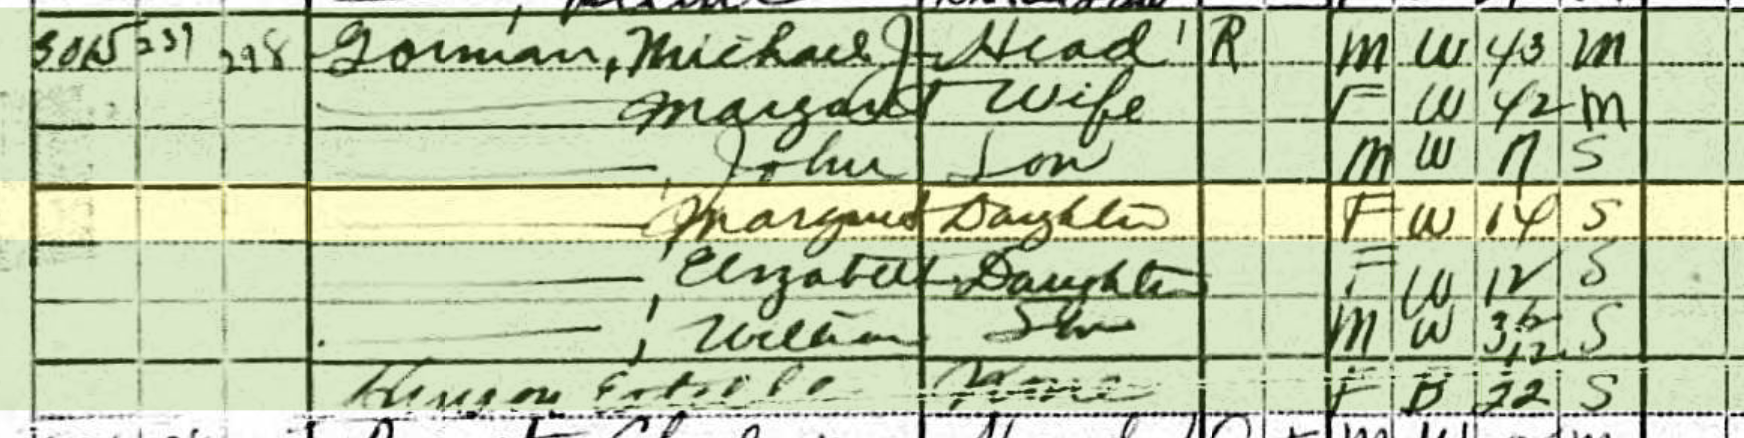 3015 237 298 Gorman, Michael J Head R M W 43 M
Margaret Wife F W 42 M
John Son M W 17 S
Margaret Daughter F W 14 S
Elizabeth Daughter F W 12 S
William Son M W 3 6/12 S
F B 22 S